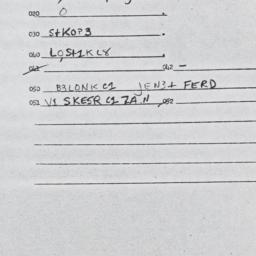 020 0 .
030 S+KOP3 .
040 LOS+1KL8 .
041 042 –
050 B3LONKC1 JEN3+ FERD
051 V1 SKESR C1 ZAN , 052